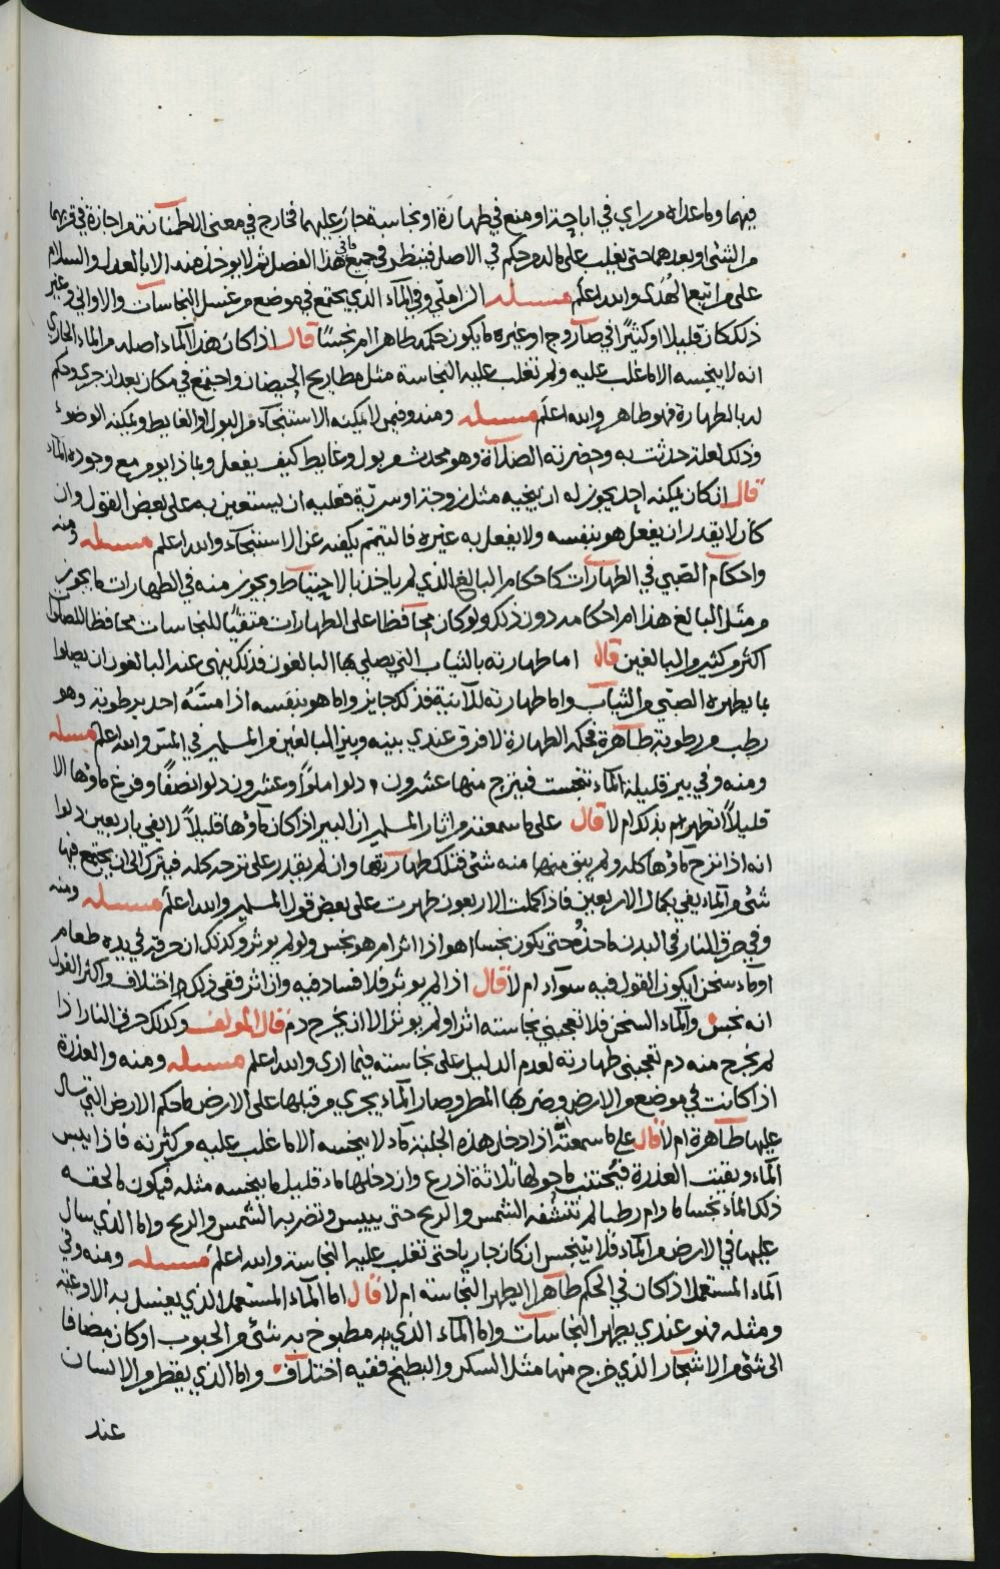 فيهما وما عداه من راي في اباحة او منع في طهارة او نجاسة جاز عليهما فخارج في معنى الاطمئنانة من اجازة في قربهما
من الشئ او بعدهما حتى يغلب على ما له من حكم في الاصل فينظر في جميع ما في هذا الفصل ثم لا يوخذ منه الا بالعدل والسلام
على من اتبع الهدى والله اعلم مسئلة الزاملي وفي الماء الذي يجتمع في موضع من غسل النجاسات والاواني وغير
ذلك كان قليلا او كثيرا في صاروج او غيره ما يكون حكمه طاهرا ام نجسا قال اذا كان هذا الماء اصله من الماء الجاري
انه لا ينجسه الا ما غلب عليه ولم تغلب عليه النجاسة مثل مطاريح الحيضان واجتمع في مكان بعد ان جرى وحكم
له بالطهارة فهو طاهر والله اعلم مسئلة ومنه وفيمن لا يمكنه الاستنجاء من البول او الغايط ويمكنه الوضوء
وذلك لعلة حدثت به وحضرته الصلاة وهو محدث ببول وغايط كيف يفعل وبماذا يومر مع وجوده الماء
قال ان كان يمكنه احد يجوز له ان ينجيه مثل زوجة او سرية فعليه ان يستعين به على بعض القول وان
كان لا يقدر ان يفعل هو بنفسه ولا يفعل به غيره فالتيمم يكفيه عن الاستنجاء والله اعلم مسئلة ومنه
واحكام الصبي في الطهارات كاحكام البالغ الذي لم ياخذ بالاحتياط ويجوز منه في الطهارات ما يجوز
من مثل البالغ هذا ام احكامه دون ذلك ولو كان محافظا على الطهارات متقيا للنجاسات محافظا للصلوات
اكثر من كثير من البالغين قال اما طهارته بالثياب التي يصلي بها البالغون فذلك ينهى عنه البالغون ان يصلوا
بما يطهره الصبي من الثياب واما طهارته للآنية فذلك جايز واما هو بنفسه اذا مسه احد برطوبة وهو
رطب من رطوبة طاهرة فحكمه الطهارة لا فرق عندي بينه وبين البالغين من المسلمين في المس والله اعلم مسئلة
ومنه وفي بير قليلة الماء تنجست فينزح منها عشرون دلوا ملوا وعشرون دلوا نصفا وفرغ ماؤها الا
قليلا اتطهر بذلك ام لا قال على ما سمعته من اثار المسلمين ان البير اذا كان ماؤها قليلا لا يفي باربعين دلوا
انه اذا نزح ماؤها كله ولم يبق منها منه شئ فتلك طهارتها وان لم يقدر على نزحه كله فيترك الى ان يجتمع فيها
شئ من الماء يفي بكمال الاربعين فاذا كملت الاربعون طهرت على بعض قول المسلمين والله اعلم مسئلة ومنه
وفي حرق النار في البدن ما حده حتى يكون نجسا اهو اذا اثر ام هو نجس ولو لم يوثر وكذلك ان حرقه في يده طعام
او ماء سخن ايكون القول فيه سواء ام لا قال اذا لم يوثر فلا فساد فيه وان اثر ففي ذلك اختلاف واكثر القول
انه نجس والماء السخن فلا تعجبني نجاسته اثر او لم يوثر الا ان يخرج دم قال المولف وكذلك حرق النار اذا
لم يخرج منه دم تعجبني طهارته لعدم الدليل على نجاسته فيما ارى والله اعلم مسئلة ومنه والعذرة
اذا كانت في موضع من الارض وضربها المطر وصار الماء يجري من قبلها على الارض ما حكم الارض التي سال
عليها طاهرة ام لا قال على ما سمعته انه اذا دخل هذه الجلبة ماء لا ينجسه الا ما غلب عليه من كثرته فاذا يبس
الماء وبقيت العذرة فيجتنب ما حولها ثلاثة اذرع وان دخلها ماء قليل ما ينجسه مثله فيكون ما لحقه
ذلك الماء نجسا ما دام رطبا لم تنشفه الشمس والريح حتى ييبس وتضربه الشمس والريح واما الذي سال
عليها في الارض من الماء فلا يتنجس ان كان جاريا حتى تغلب عليه النجاسة والله اعلم مسئلة ومنه وفي
الماء المستعمل اذا كان في الحكم طاهرا ايطهر النجاسة ام لا قال اما الماء المستعمل الذي يغسل به الاوعية
ومثله فهو عندي يطهر النجاسات واما الماء الذي به مطبوخ به شئ من الحبوب او كان مضافا
الى شئ من الاشجار الذي خرج منها مثل السكر والبطيخ ففيه اختلاف واما الذي يقطر من الانسان
عند